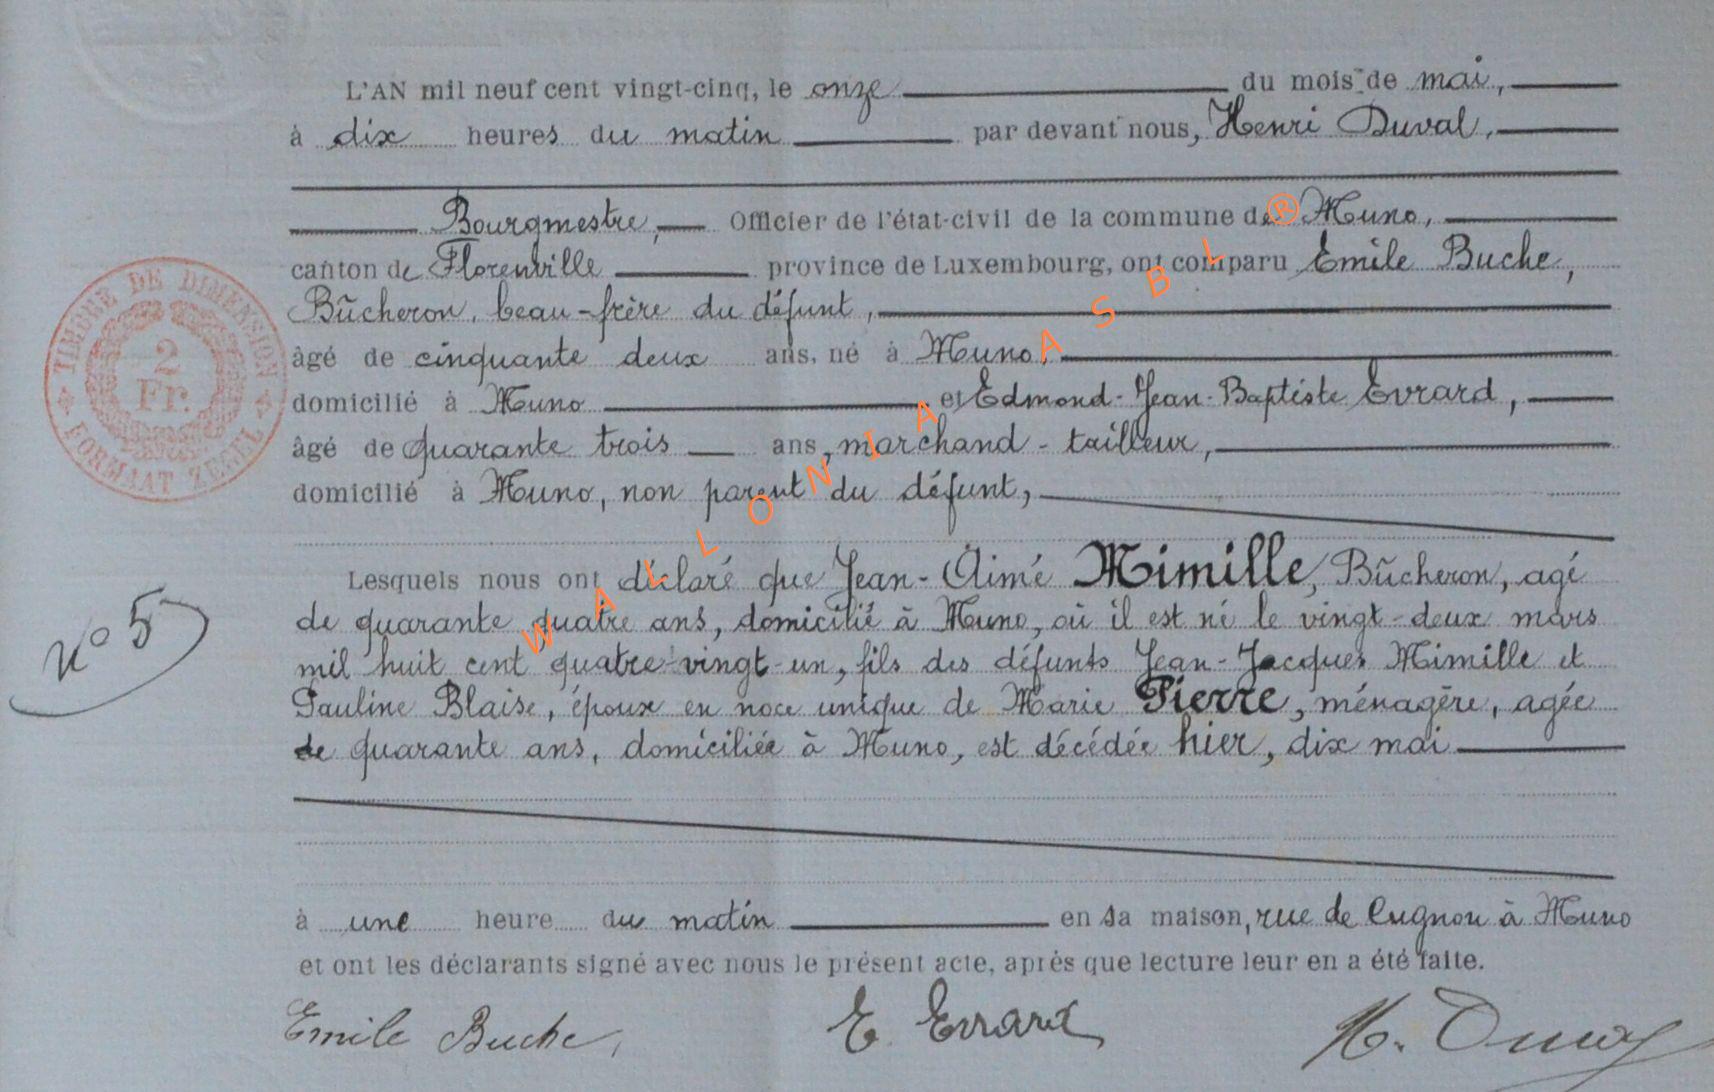 L'AN mil neuf cent vingt-cinq, le onze du mois de mai,
à dix heures du matin par devant nous, Henri Duval,
Bourgmestre, Officier de l'état-civil de la commune de Muno,
canton de Florenville province de Luxembourg, ont comparu Emile Buche,
Bûcheron, beau-frère du défunt,
âgé de cinquante deux ans, né à Muno,
domicilié à Muno et Edmond-Jean-Baptiste Evrard,
âgé de quarante trois ans, marchand-tailleur,
domicilié à Muno, non parent du défunt,
Lesquels nous ont déclaré que Jean-Aimé Mimille, Bûcheron, agé
de quarante quatre ans, domicilié à Muno, où il est né le vingt-deux mars
mil huit cent quatre-vingt-un, fils des défunts Jean-Jacques Mimille et
Pauline Blaise, époux en noce unique de Marie Pierre, ménagère, agée
de quarante ans, domiciliée à Muno, est décédée hier, dix mai
à une heure du matin en sa maison, rue de Cugnon à Muno
et ont les déclarants signé avec nous le présent acte, après que lecture leur en a été faite.
Emile Buche, E Evrard H. Duval
N° 5
TIMBRE DE DIMENSION
2
Fr.
FORMAAT ZEGEL
WALLONIA ASBL ®